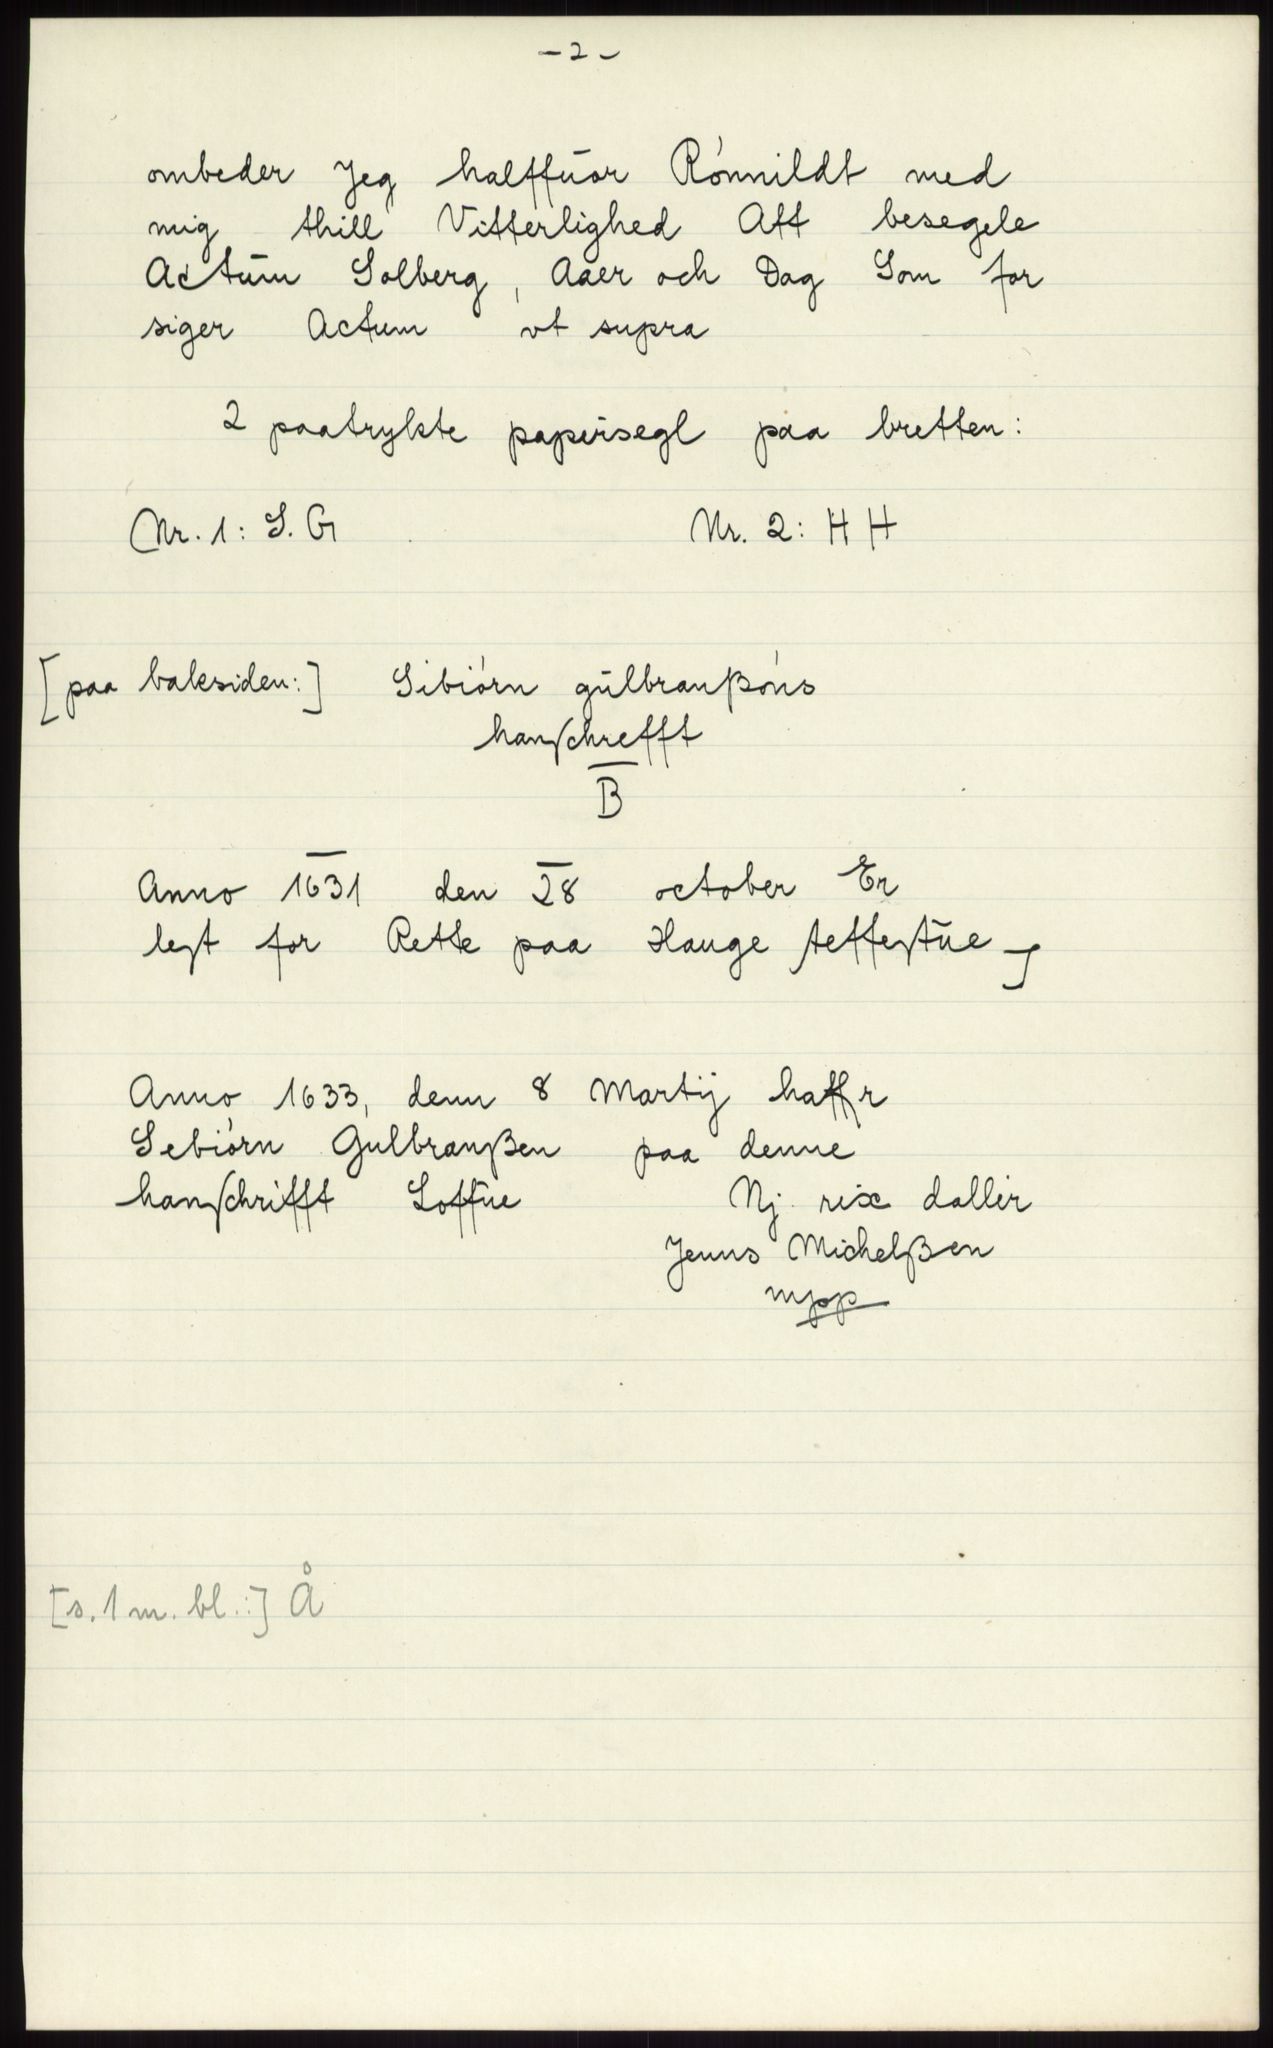 - 2 -
ombeder Jeg halffuor Rónnildt med
mig thill Vitterlighed Att besegele
Actūm Solberg, Aaer och Dag Som for
siger Actum vt supra
2 paatrykte papirsegl paa bretten:
Nr. 1: S. G Nr. 2: H H
[paa baksiden:] Sibiórn gūlbranßóns
hanschrefft
B
Anno 1631 den 28 october Er
lest for Rette paa Hauge steffestūe
Anno 1633, denn 8 Martij haffr
Sebiórn Gulbranßen paa denne
hanschrifft Loffūe Nj rix dallir
Jenns Michelßen
mpp
[s. 1 m. bl.:] Å